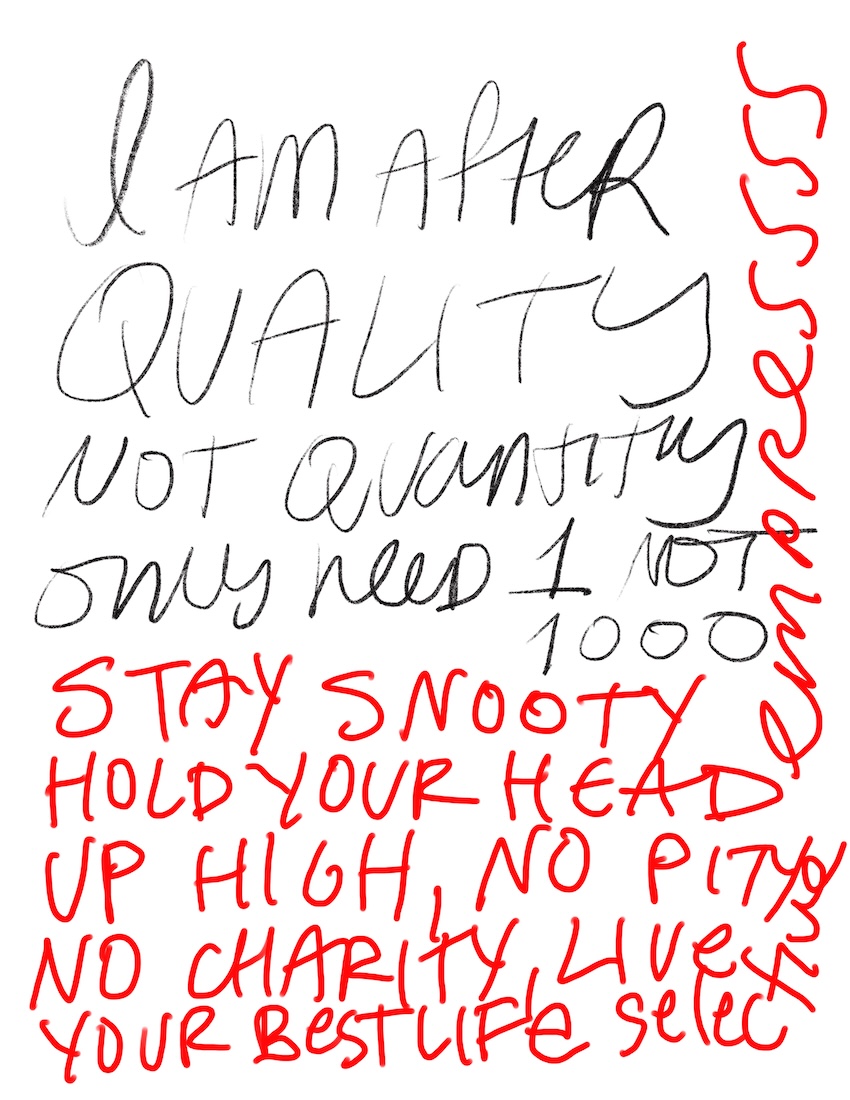 I AM AfteR
QUALITY
NOT QUantity
only neeD 1 NOT
1000
STAY SNOOTY
HOLD YOUR HEAD
UP HIGH, NO PITY,
NO CHARITY, LIVe
YOUR BeST LIFe selective
empResssss